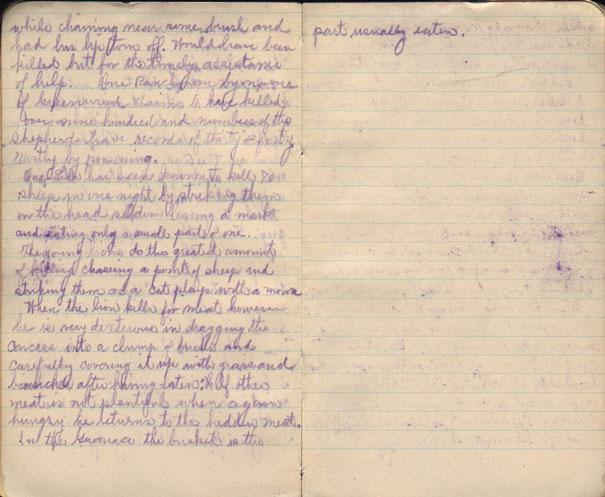 while chaining near some brush and
had his lip torn off. Would have been
killed but for the timely assistance
of help. One Ranch by name
of claims to have killed
over nine hundred and numbers of the
shepherds have records of thirty & forty
mostly by poisoning.
One Lion has been known to kill 20
sheep in one night by striking them
on the head seldom leaving a mark
and eating only a small part of one.
The young lions do the greatest amount
of killing chasing a point of sheep and
striking them as a cat plays with a mouse
When the lion kills for meat however
he is very dexterous in dragging the
carcass into a clump of brush and
carefully covering it up with grass and
branches after having eaten. If other
meat is not plentiful when again
hungry he returns to the hidden meat.
In the the brisket is the
part usually eaten.